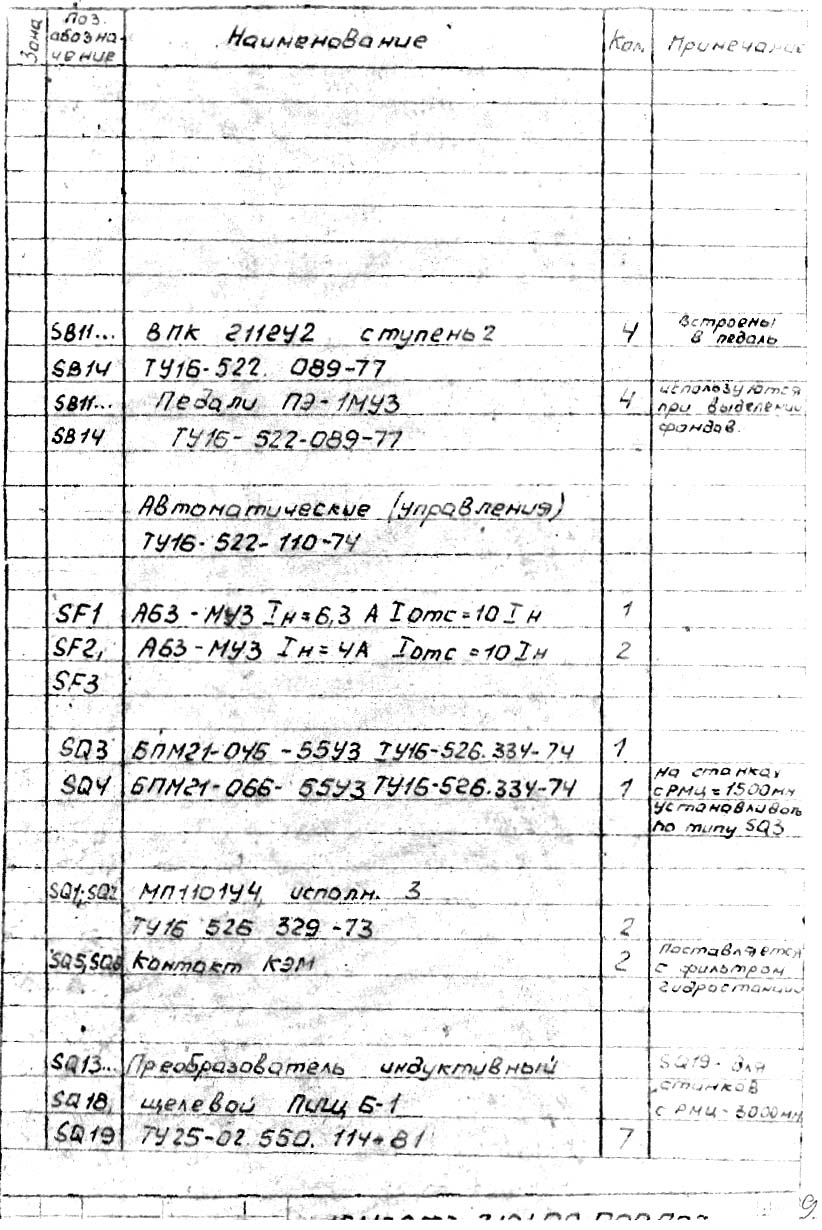 Зона
Поз. обозначение Наименование Кол. Примечание
SB11... ВПК 2112У2 ступень 2 4 Встроены
в педаль
SB14 ТУ16-522. 089-77
SB11... Педали ПЭ-1МУ3 4 используются
при выделении
SB14 ТУ16-522-089-77 фондов.
Автоматические (управления)
ТУ16-522-110-74
SF1 А63-МУ3 Iн=6,3 А Iотс=10Iн 1
SF2, А63-МУ3 Iн=4А Iотс=10Iн 2
SF3
SQ3 БПМ21-046-55У3 ТУ16-526.334-74 1
SQ4 БПМ21-066-55У3 ТУ16-526.334-74 1 На станках
с РМЦ=1500мм
устанавливать
по типу SQ3
SQ1;SQ2 МП1101У4, исполн. 3
ТУ16 526 329-73 2
SQ5,SQ6 Контакт КЭМ 2 Поставляется
с фильтром
гидростанции
SQ13... Преобразователь индуктивный SQ19- для
SQ18, щелевой ПИЩ 6-1 станков
с РМЦ-3000мм
SQ19 ТУ25-02.550.114-81 7
9